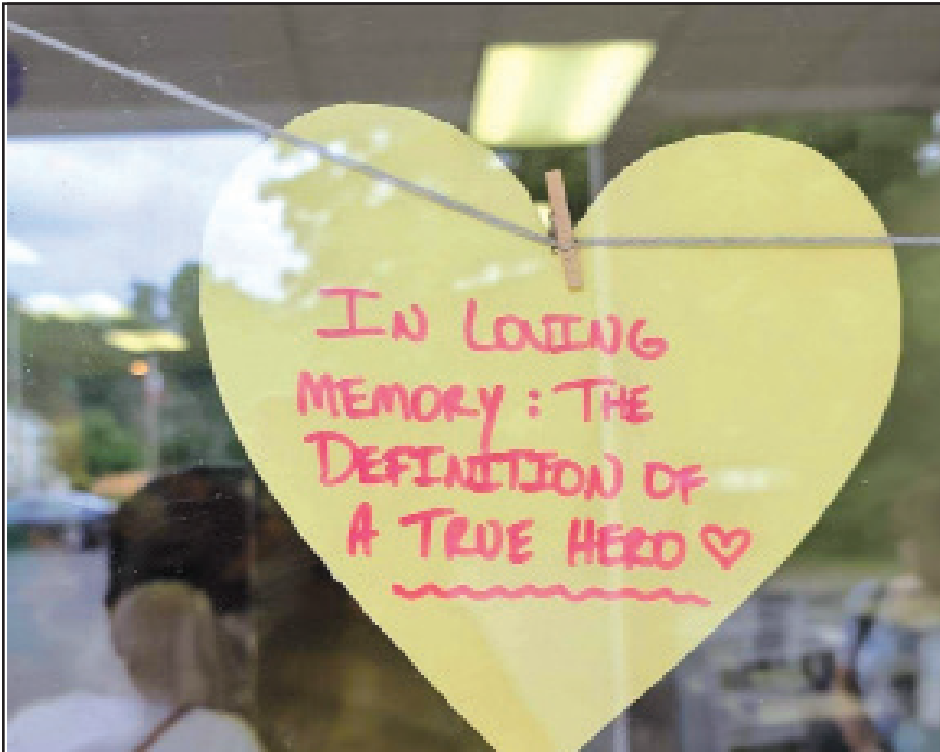 IN LOVING
MEMORY: THE
DEFINITION OF
A TRUE HERO♡